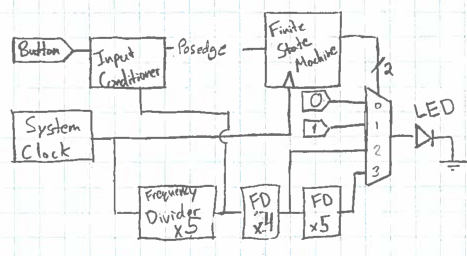 Button
Input
Conditioner
Posedge
Finite
State
Machine
2
System
Clock
0
1
0
1
2
3
LED
Frequency
Divider
x5
FD
x4
FD
x5